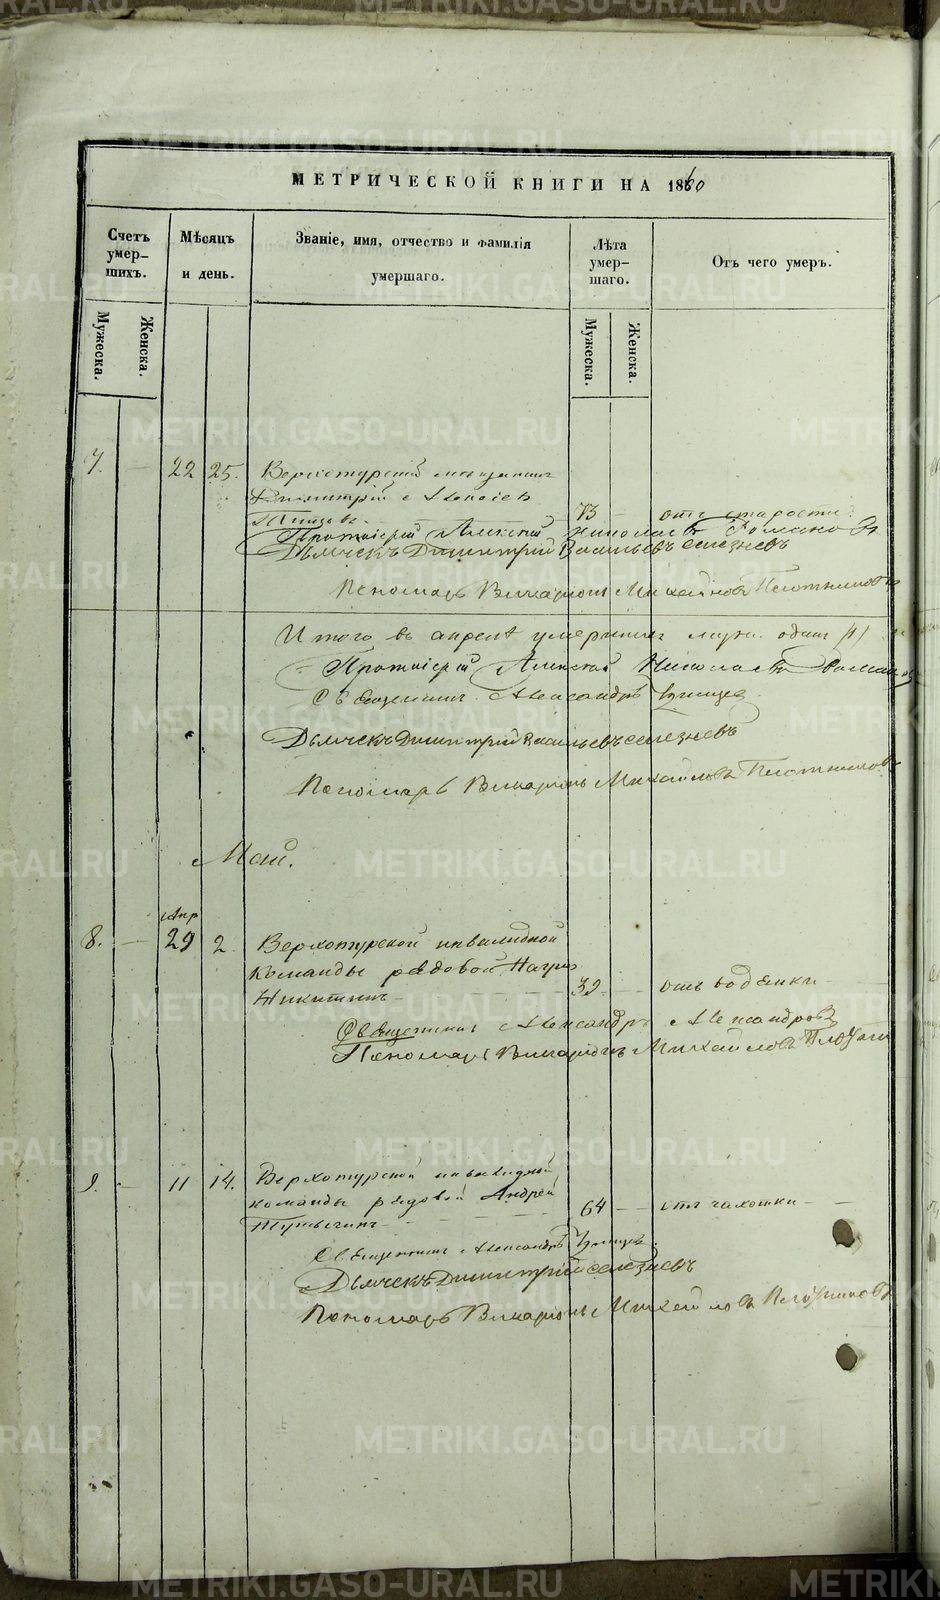 МЕТРИЧЕСКОЙ КНИГИ НА 1860
Счетъ умер-шихъ.
Мѣсяцъ и день.
Званіе, имя, отчество и фамилія умершаго.
Лѣта умер-шаго.
Отъ чего умеръ.
Мужеска.
Женска.
Мужеска.
Женска.
7. — 22 25. Верхотурскій мещанинъ
Димитрій Алексіевъ
73 — отъ старости.
Протоіерей Алексій Николаевъ Романовъ
Дьячекъ Димитрій Васильевъ Селезневъ
Пономарь Виларіонъ Михайловъ Плотниковъ
Итого въ апрелѣ умершихъ муж. одинъ (1)
Протоіерей Алексій Николаевъ Романовъ
Священникъ Александръ
Дьячекъ Димитрій Васильевъ Селезневъ
Пономарь Виларіонъ Михайловъ Плотниковъ
Маій.
Апр
8. — 29 2 Верхотурской инвалидной
команды рядовой
Никитинъ — 39 — отъ водянки —
Священникъ Александръ Александровъ
Пономарь Виларіонъ Михайловъ
9. — 11 14. Верхотурской инвалидной
команды рядовой Андрей
64 — — отъ чахотки —
Священникъ Александръ
Дьячекъ Димитрій Селезневъ
Пономарь Виларіонъ Михайловъ Плотниковъ
METRIKI.GASO-URAL.RU